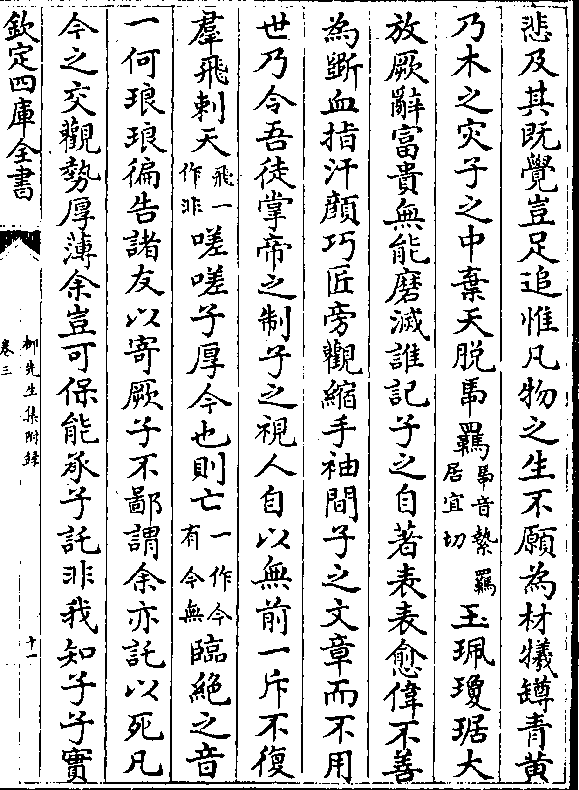 悲及其既覺豈足追惟凡物之生不願為材犧罇青黄
乃木之灾子之中棄天脱馽羈馽音縶羈居宜切玉珮瓊琚大
放厥辭富貴無能磨滅誰記子之自著表表愈偉不善
為斵血指汗顔巧匠旁觀縮手袖間子之文章而不用
世乃令吾徒掌帝之制子之視人自以無前一斥不復
羣飛刺天飛一作非嗟嗟子厚今也則亡一作今有今無臨絶之音
一何琅琅徧告諸友以寄厥子不鄙謂余亦託以死凡
今之交觀勢厚薄余豈可保能承子託非我知子子實
欽定四庫全書
柳先生集附録
卷三
十一